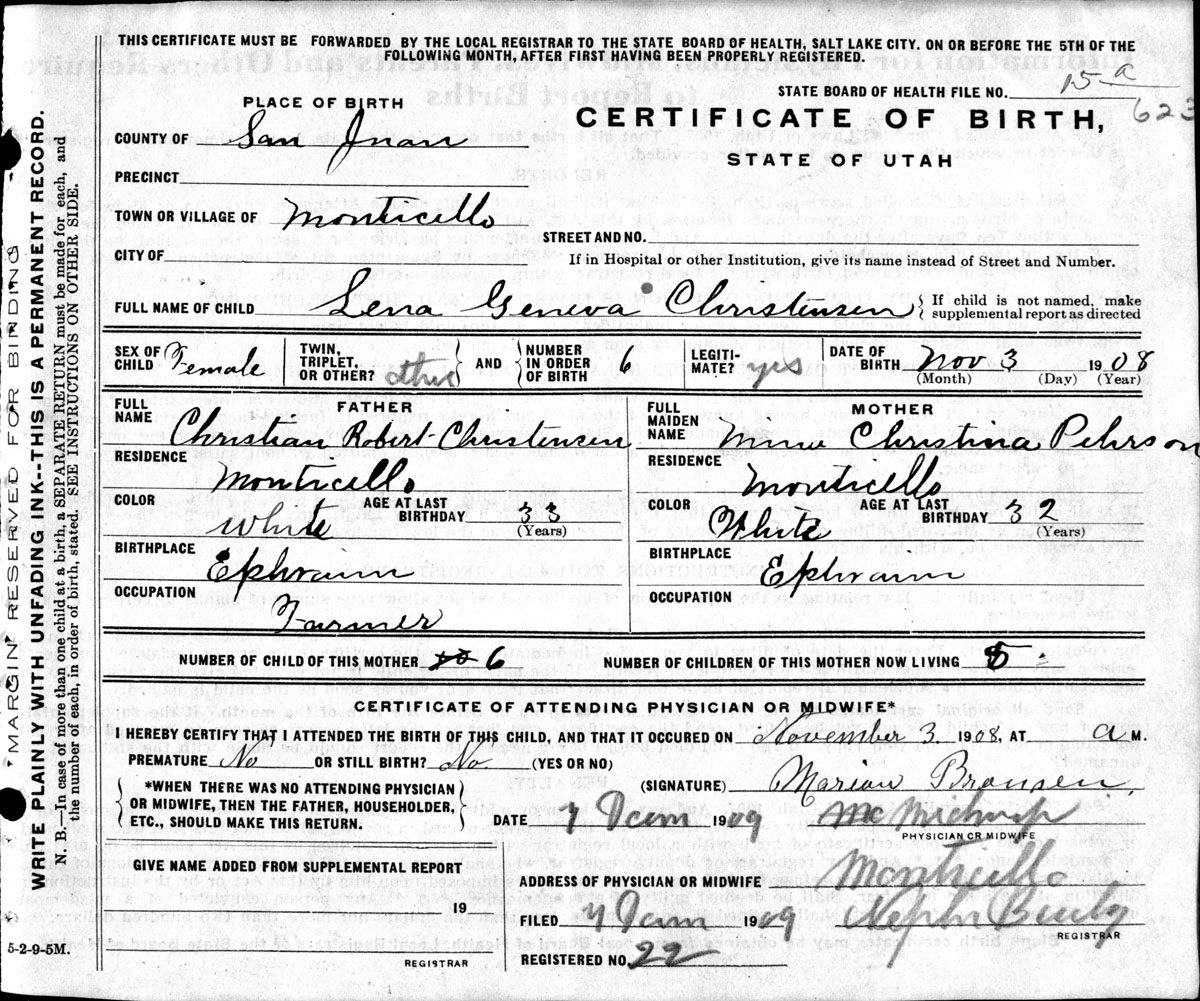 THIS CERTIFICATE MUST BE FORWARDED BY THE LOCAL REGISTRAR TO THE STATE BOARD OF HEALTH, SALT LAKE CITY. ON OR BEFORE THE 5TH OF THE
FOLLOWING MONTH, AFTER FIRST HAVING BEEN PROPERLY REGISTERED.
STATE BOARD OF HEALTH FILE NO. 15-a
623
PLACE OF BIRTH
CERTIFICATE OF BIRTH,
STATE OF UTAH
COUNTY OF San Juan
PRECINCT
TOWN OR VILLAGE OF Monticello
STREET AND NO.
CITY OF
If in Hospital or other Institution, give its name instead of Street and Number.
FULL NAME OF CHILD Lena Geneva Christensen { If child is not named, make
supplemental report as directed
SEX OF CHILD Female
TWIN, TRIPLET, OR OTHER? other } AND { NUMBER IN ORDER OF BIRTH 6
LEGITI-MATE? yes
DATE OF BIRTH Nov 3 1908
(Month) (Day) (Year)
FATHER
FULL NAME Christian Robert Christensen
RESIDENCE Monticello
COLOR White AGE AT LAST BIRTHDAY 33 (Years)
BIRTHPLACE Ephraim
OCCUPATION Farmer
MOTHER
FULL MAIDEN NAME Christina Pehrson
RESIDENCE Monticello
COLOR White AGE AT LAST BIRTHDAY 32 (Years)
BIRTHPLACE Ephraim
OCCUPATION
NUMBER OF CHILD OF THIS MOTHER 6 NUMBER OF CHILDREN OF THIS MOTHER NOW LIVING
CERTIFICATE OF ATTENDING PHYSICIAN OR MIDWIFE*
I HEREBY CERTIFY THAT I ATTENDED THE BIRTH OF THIS CHILD, AND THAT IT OCCURED ON November 3 1908, AT a M.
PREMATURE No OR STILL BIRTH? No. (YES OR NO)
{ *WHEN THERE WAS NO ATTENDING PHYSICIAN
OR MIDWIFE, THEN THE FATHER, HOUSEHOLDER,
ETC., SHOULD MAKE THIS RETURN. }
(SIGNATURE) Marian Bronsen,
DATE 1909
PHYSICIAN OR MIDWIFE
GIVE NAME ADDED FROM SUPPLEMENTAL REPORT
19
REGISTRAR
ADDRESS OF PHYSICIAN OR MIDWIFE Monticello
FILED 1909
REGISTRAR
REGISTERED NO. 22
MARGIN RESERVED FOR BINDING
WRITE PLAINLY WITH UNFADING INK--THIS IS A PERMANENT RECORD.
N. B.—In case of more than one child at a birth, a SEPARATE RETURN must be made for each, and
the number of each, in order of birth, stated. SEE INSTRUCTIONS ON OTHER SIDE.
5-2-9-5M.